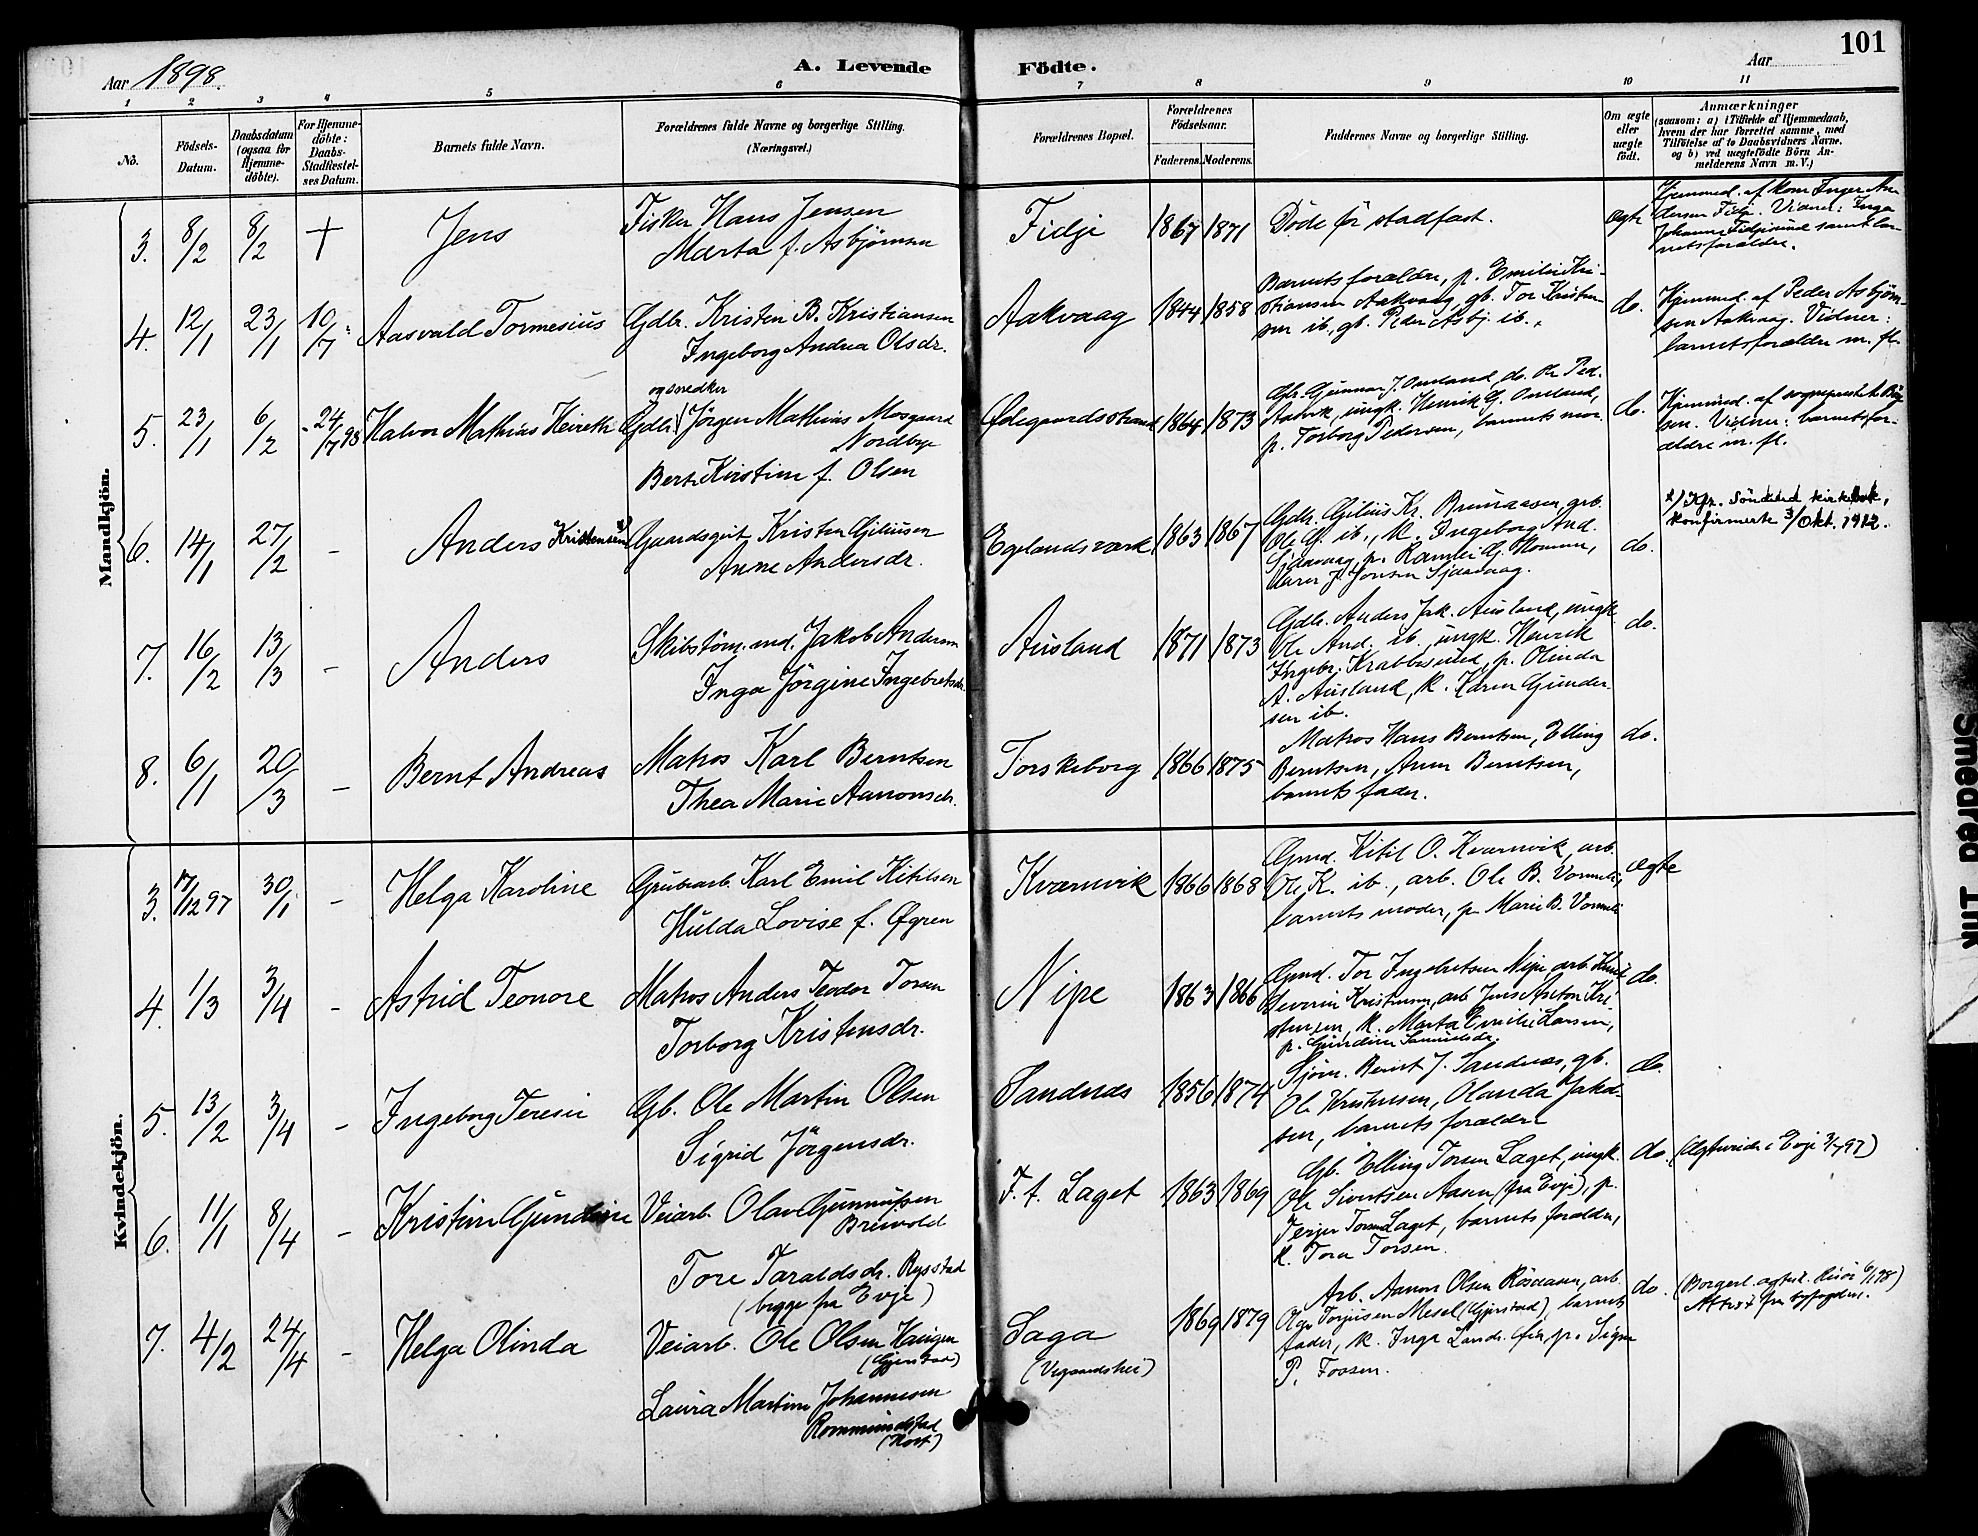 101
Aar 1898.
A. Levende Födte.
Aar
1 2 3 4 5 6 7 8 9 10 11
No.
Födsels-Datum.
Daabsdatum (ogsaa for Hjemme-döbte).
For Hjemme-döbte: Daabs-Stadfæstel-ses Datum.
Barnets fulde Navn.
Forældrenes fulde Navne og borgerlige Stilling. (Næringsvei.)
Forældrenes Bopæl.
Forældrenes Födselsaar.
Faderens. Moderens.
Faddernes Navne og borgerlige Stilling.
Om ægte eller uægte födt.
Anmærkninger
(saasom: a) i Tilfælde af Hjemmedaab,
hvem der har forrettet samme, med
Tilföielse af to Daabsvidners Navne.
og b) ved uægtefödte Börn An-
melderens Navn m. V.)
Mandkjön.
3. 8/2 8/2 + Jens
Fisker Hans Jensen
Marta f. Asbjørnsen
Fidje 1867 1871 Döde før stadfæst. ægte
Hjemmed. af kone Inger An-
dersen Fidje. Vidner: Inga
4. 12/1 23/1 10/7 Aasvald Tormesius
Gdbr. Kristen B. Kristiansen
Ingeborg Andrea Olsdr.
Aakvaag 1844 1858
Barnets forældre, p. Emilie Kri-
stiansen Aakvaag, gb. Tor Kristen-
sen ib., gb. Peder Asbj. ib.
do.
Hjemmed. af Peder Asbjørn-
sen Aakvaag. Vidner:
barnets forældre m. fl.
5. 23/1 6/2 24/7 98 Halvor Mathias Keireth
og snedker
Gdbr. Jörgen Mathias Mosgaard
Nordbye
Berte Kirstine f. Olsen
Ødegaardsstrand 1864 1873
p. Torborg Pedersen, barnets mor.
do.
sen. Vidner: barnets for-
ældre m. fl.
6. 14/1 27/2 - Anders Kristensen x)
Gaardsgut Kristen Gjeliusen
Anne Andersdr.
Egelandsværk 1863 1867
Ole G. ib., k. Ingeborg And.
do.
x) Kfr. Søndeled kirkebok,
konfirmerte 3/Okt. 1912.
7. 16/2 13/3 - Anders
Skibstöm.md. Jakob Andersen
Inga Jörgine Ingebretsdr.
Ausland 1871 1873
Gdbr. Anders Jak. Ausland, ungk.
Ole And. ib., ungk. Henrik
Ingebr. Krabbesund, p. Olinda
A. Ausland, k. Karen Gunder-
sen ib.
do.
8. 6/1 20/3 - Bernt Andreas
Matros Karl Berntsen
Thea Marie Aanonsdr.
Torskeborg 1866 1875
Matros Hans Berntsen, Elling
Berntsen, Anne Berntsen,
barnets fader.
do.
Kvindekjön.
3. 17/12 97 30/1 - Helga Karoline
Grubearb. Karl Emil Kittilsen
Hulda Lovise f. Øgren
Kvarnvik 1866 1868
Gmd. Kitil O. Kvarnvik, arb.
Ole K. ib., arb. Ole B. Vormeli,
barnets moder, p. Marie B. Vormeli
ægte
4. 1/3 3/4 - Astrid Teonore
Matros Anders Teodor Torsen
Torborg Kristensdr.
Nipe 1863 1866
Gmd. Tor Ingebretsen Nipe, arb. Knut
Severin Kristensen, arb. Jens Anton Kri-
stensen, k. Marta Emilie Larsen,
p. Gundine Samuelsdr.
do.
5. 13/2 3/4 - Ingeborg Teresie
Gb. Ole Martin Olsen
Sigrid Jörgensdr.
Sandnæs 1856 1874
Sjöm. Bernt J. Sandnæs, gb.
Ole Kristensen, Olanda Jakob-
sen, barnets forældre
do.
6. 11/1 8/4 - Kristine Gundine
Veiarb. Olav Gunnufsen
Breivold
Tore Taraldsdr. Rysstad
(begge fra Evje)
F. t. Laget 1863 1869
Gb. Elling Torsen Laget, ungk.
Ole Sivertsen Aasen (fra Evje), p.
Terjer Torsen Laget, barnets forældre,
k. Tora Torsen.
do. (Ægtviede i Evje 3/7 97)
7. 4/2 24/4 - Helga Olinda
Veiarb. Ole Olsen Haugen
(Gjerstad)
Laura Martine Johannesen
Rommundstad
(Holt)
Saga
(Vegaardshei)
1869 1879
Arb. Aanon Olsen Röseaasen, arb.
Olav Torjusen Mesel (Gjerstad), barnets
P. Torsen.
do. (Borgerl. ægtev. Risör 6/1 98)